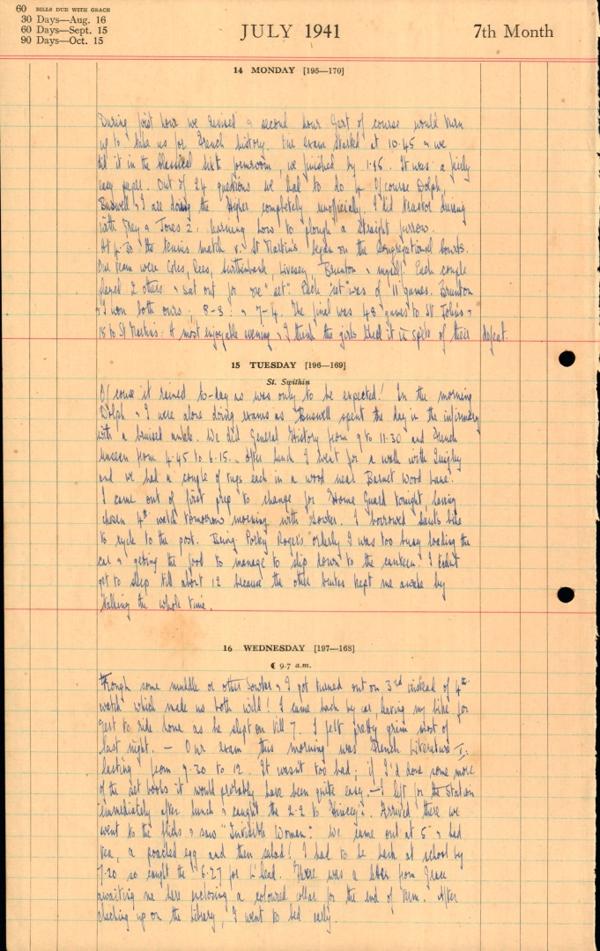 60 BILLS DUE WITH GRACE
30 Days—Aug. 16
60 Days—Sept. 15
90 Days—Oct. 15
JULY 1941
7th Month
14 MONDAY [195-170]
During first hour we revised & second hour Gert of course would turn
up to take us for French history. The exam started at 10.45 & we
did it in the Classical sixth formroom, we finished by 1.15. It was a fairly
easy paper. Out of 24 questions we had to do 4. Of course Dolph,
Buswell & I are doing the Higher completely unofficially. I did during
with & Jones 2. learning how to plough a straight furrow.
At 4.30 the tennis match v. St Martins began on the Congregational Courts.
Our team were Coles, Rees, Livesey, Brunton & myself. Each couple
played 2 others & sat out for one "set". Each "set" was of 11 games. Brunton
& I won both ours; 8-3 & 7-4. The final was 48 games to St John's &
18 to St Martins. A most enjoyable evening & I think the girls liked it in spite of their defeat.
15 TUESDAY [196-169]
St. Swithin
Of course it rained to-day as was only to be expected! In the morning
Dolph & I were alone doing exams as Buswell spent the day in the infirmary
with a bruised ankle. We did General History from 9 to 11.30 and French
Unseen from 4.45 to 6.15. After lunch I went for a walk with Quigley
and we had a couple of each in a wood near Barnet Wood Lane.
I came out of first prep to change for Home Guard tonight having
chosen 4th watch tomorrow morning with Fowler. I borrowed bike
to cycle to the post. Being Porky Roger's orderly I was too busy loading the
car & getting the food to manage to slip down to the canteen. I didn't
get to sleep till about 12 because the other kept me awake by
talking the whole time.
16 WEDNESDAY [197-168]
☾ 9.7 a.m.
Through some muddle or other Fowler & I got turned out on 3rd instead of 4th
watch which made us both wild! I came back by car leaving my bike for
Gert to ride home as he slept on till 7. I felt pretty grim most of
last night. — Our exam this morning was French Literature I,
lasting from 9.30 to 12. It wasn't too bad; if I'd done some more
of the set books it would probably have been quite easy. — I left for the station
immediately after lunch & caught the 2.2 to . Arrived there we
went to the flicks & saw "Invisible Woman". We came out at 5 & had
tea, a poached egg and then salad! I had to be back at school by
7.20 so caught the 6.27 for L'head. There was a letter from Grace
awaiting me here enclosing a coloured collar for the end of term. After
checking up on the Library, I went to bed early.